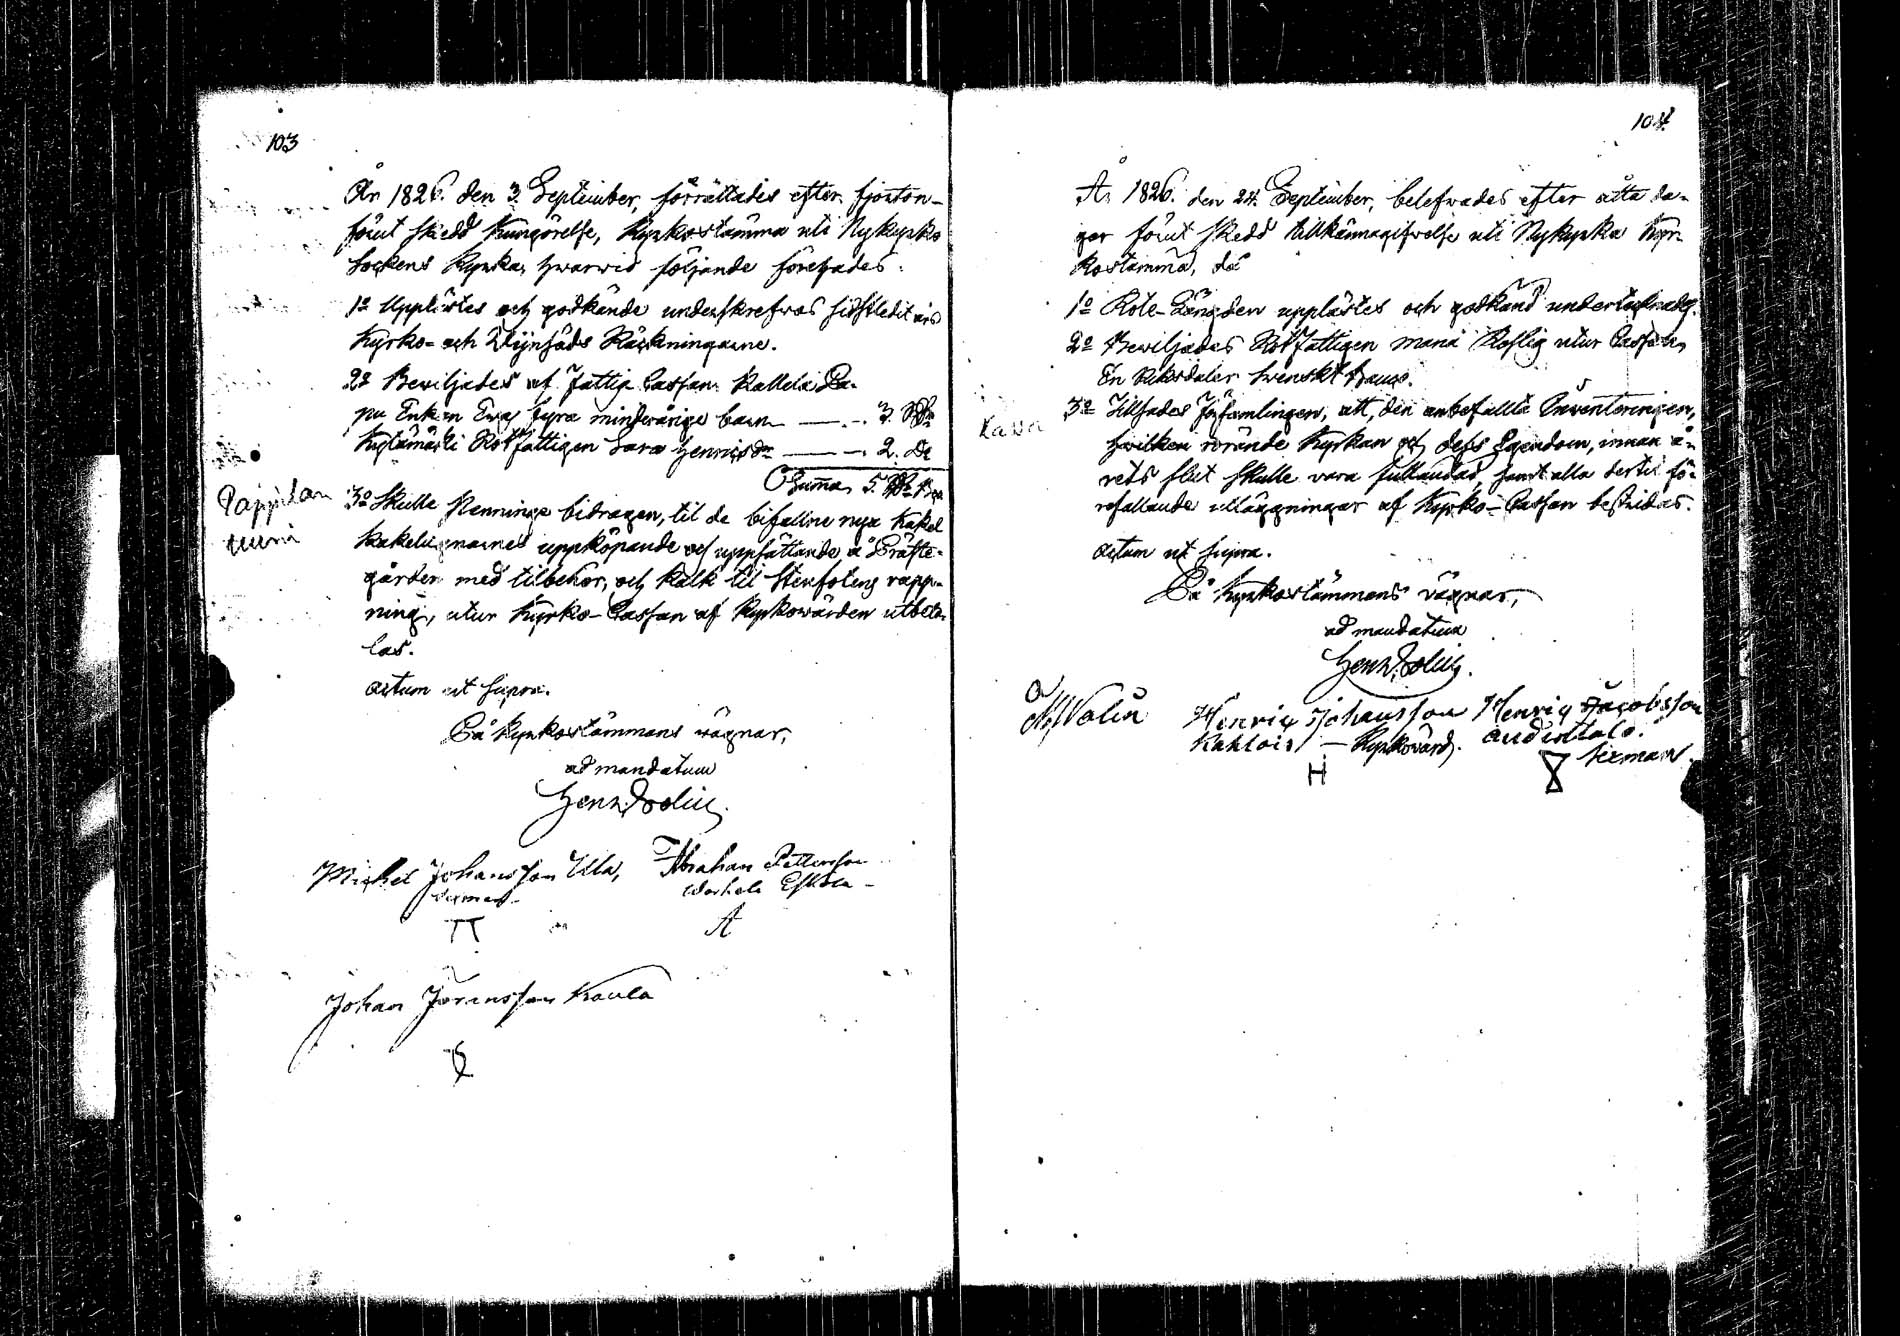 103
År 1826. den 3. September, förrättades efter fjorton-
förut skedd Kungörelse, Kyrkostämma uti Nykyrko
Sockens Kyrka, hwarwid följande förehades:
1o Upplästes och godkände underskrefwos sidstledit års
Kyrko- och Räckningarne.
2o Beviljades af Fattig Cassan Kallela Pa-
pu Enkan Ewas fyra minderårige barn — 3. Rdr
Kylämäki Rotfattigen Sara Henricsdr — 2. De
Summa 5. Rdr Bco
Pappilan
uuni
3o Skulle Penninge bidragen, til de bifallne nya Kakel
Kakelugnarnes uppköpande och uppsättande å Präste-
gården med tilbehör, och Kalk til Stenfotens rapp-
ning, utur Kyrko-Cassan af Kyrkowärden utbeta-
las.
Actum ut supra.
På Kyrkostämmans vägnar,
ad mandatum
Henr.
Michel Johansson Ylla,
Sexman
Abraham Pettersson
Eskola
A
Johan Jöransson Kaula
104.
År 1826. den 24. September, belefwades efter åtta da-
gar förut skedd tillkännagifvelse uti Nykyrka Kyr-
kostämma, då
1o Rote-Längden upplästes och godkänd undertecknades.
2o Beviljades Rotfattigen Maria utur Cassan,
En Riksdaler Swenskt Banco.
Kassa
3o Tillsades Församlingen, att, den anbefallte Inventeringen,
hwilken rörande Kyrkan och dess Egendom, innan å-
rets slut skulle vara fullandad, samt alla dertil fö-
refallande utläggningar af Kyrko-Cassan bestridas.
Actum ut supra.
På Kyrkostämmans vägnar,
ad mandatum
Henr.
Walin
Henrig Johansson
— Kyrkovärd.
H
Henrig Jacobsson
Anduttalo.
Sexman.